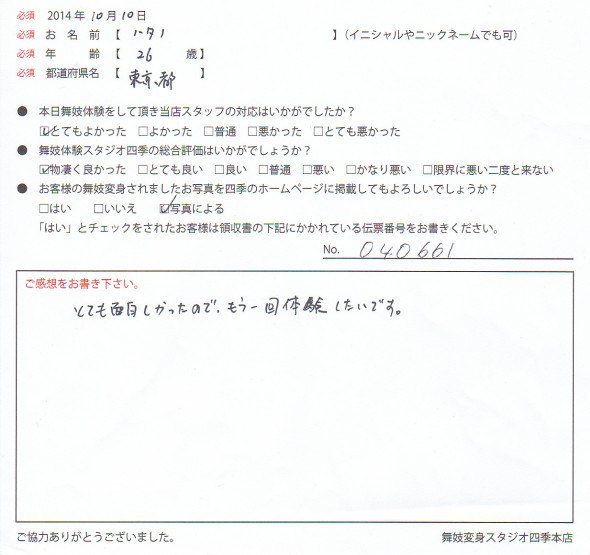 必須 2014年 10月 10日
必須 お 名 前 【 ハタノ 】(イニシャルやニックネームでも可)
必須 年 齢 【 26 歳】
必須 都道府県名 【 東京都 】
● 本日舞妓体験をして頂き当店スタッフの対応はいかがでしたか?
☑とてもよかった □よかった □普通 □悪かった □とても悪かった
● 舞妓体験スタジオ四季の総合評価はいかがでしょうか?
☑物凄く良かった □とても良い □良い □普通 □悪い □かなり悪い □限界に悪い二度と来ない
● お客様の舞妓変身されましたお写真を四季のホームページに掲載してもよろしいでしょうか?
□はい □いいえ ☑写真による
「はい」とチェックをされたお客様は領収書の下記にかかれている伝票番号をお書きください。
No. 040661
ご感想をお書き下さい。
とても面白しかったので、もう一回体験したいです。
ご協力ありがとうございました。 舞妓変身スタジオ四季本店